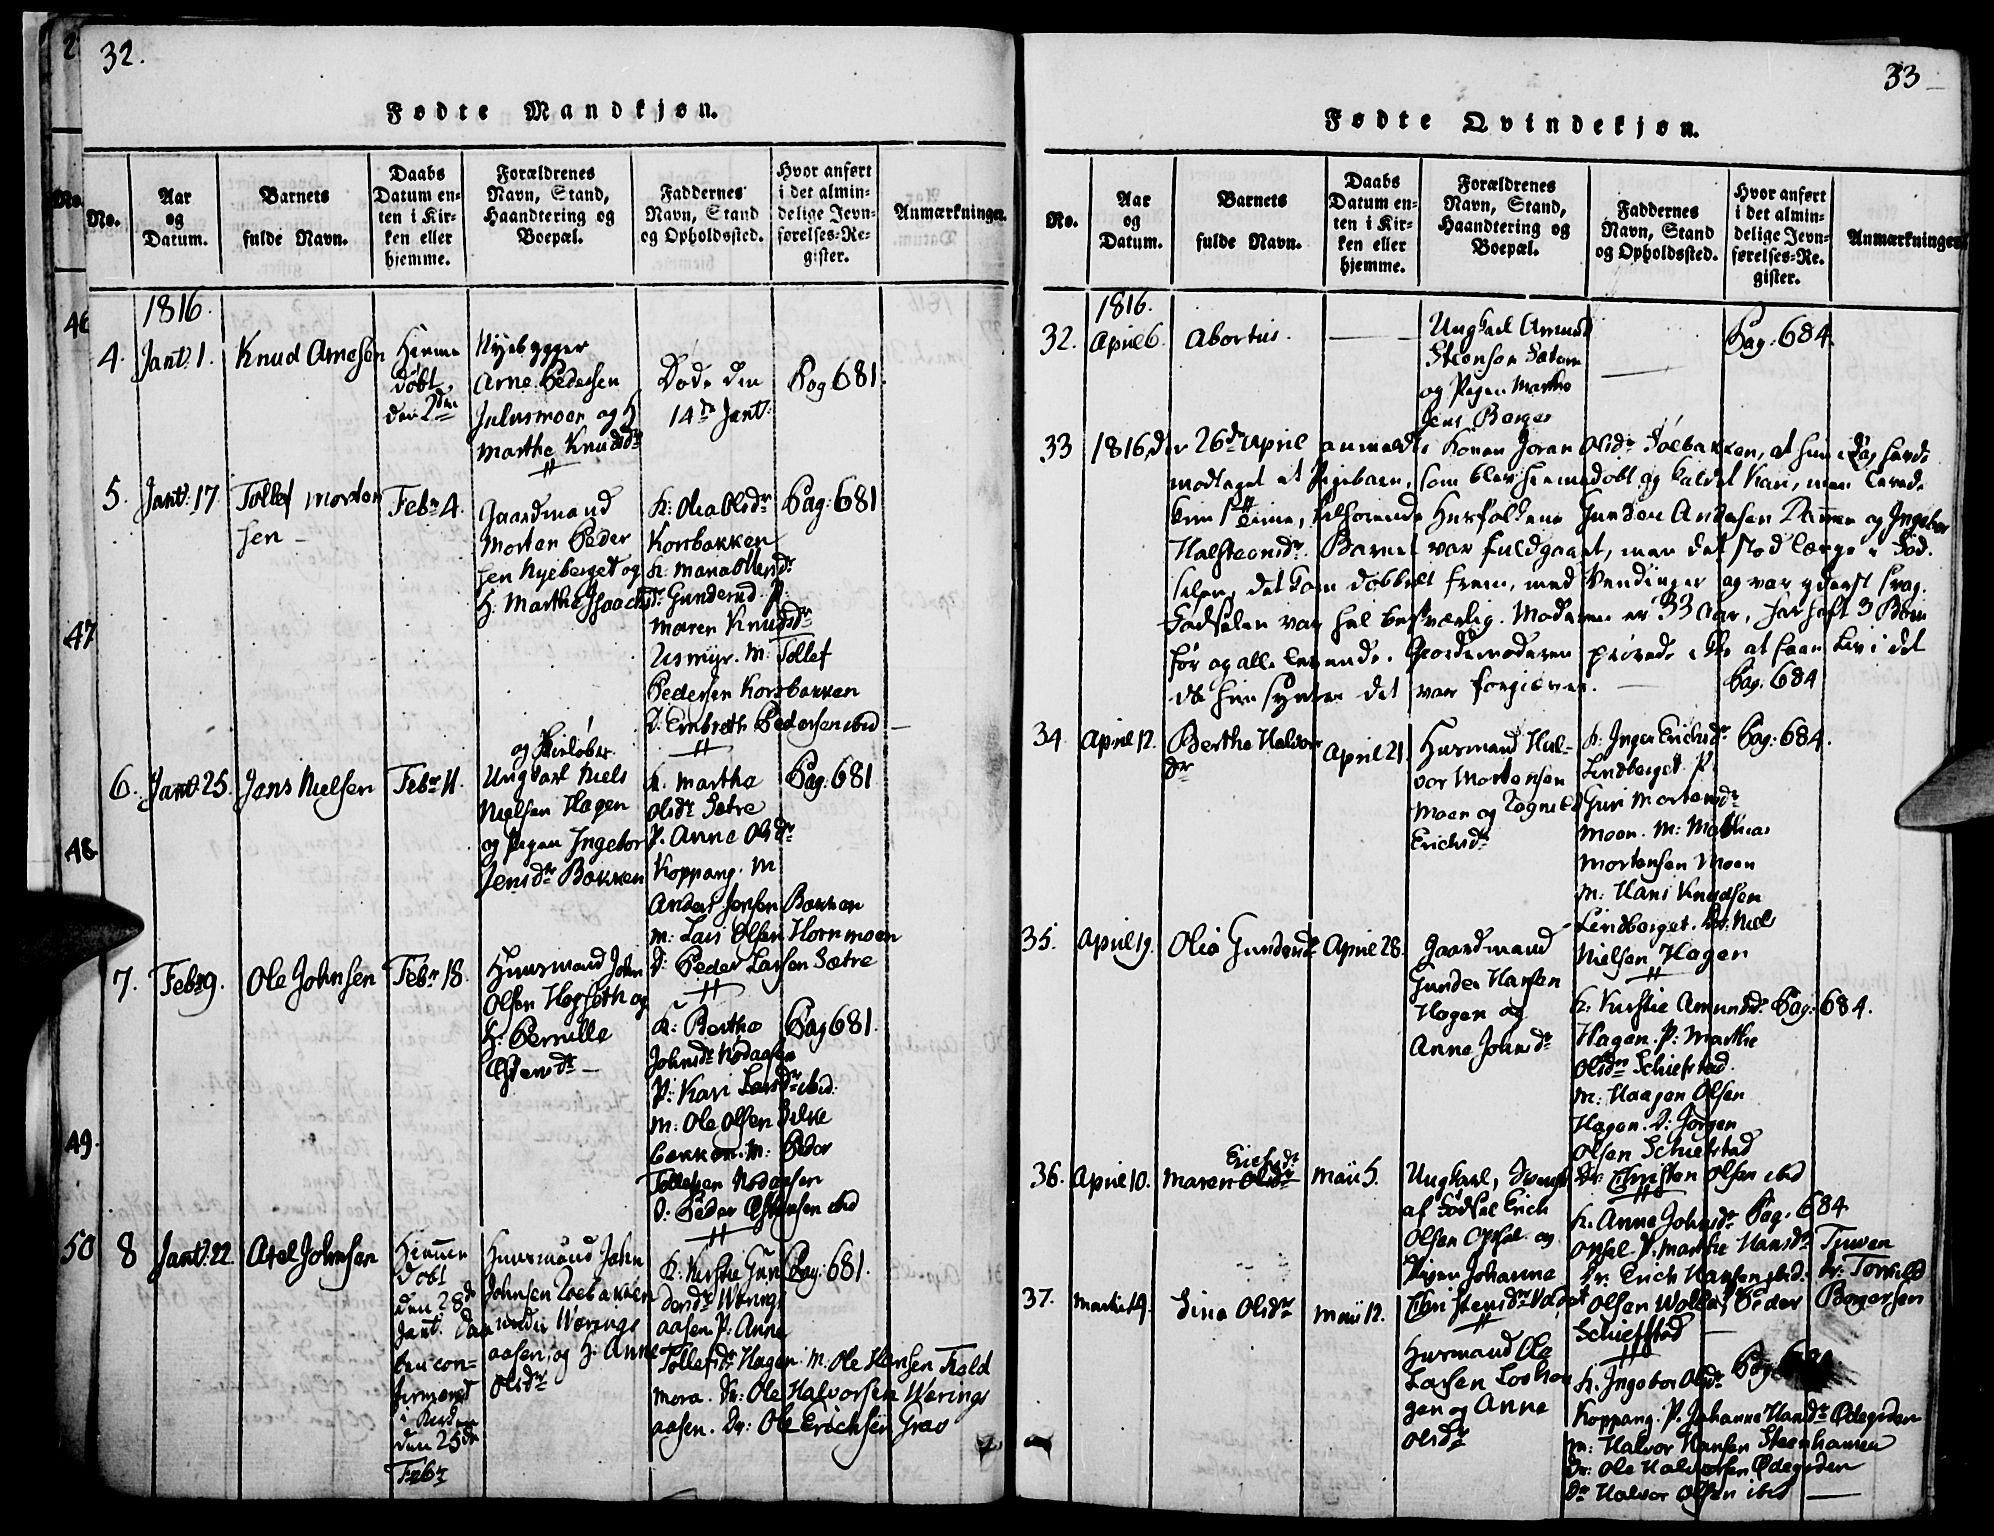 32.
Fødte Mandkjøn.
No.
Aar
og
Datum.
Barnets
fulde Navn.
Daabs
Datum en-
ten i Kir-
ken eller
hjemme.
Forældrenes
Navn, Stand,
Haandtering og
Boepæl.
Faddernes
Navn, Stand
og Opholdssted.
Hvor anført
i det almin-
delige Jevn-
førelses-Re-
gister.
Anmærkninger.
1816.
4. Jan: 1. Knud Arnesen
Hiemme
døbt
den 2den
Nyebygger
Arne Pedersen
Julusmoen og H
Marthe Knudsdr
Døde den
14de Jan:
Pag 681.
5. Jan: 17. Tollef Morten
sen
Febr 4.
Gaardmand
Morten Peder
sen Nyeberget og
H. Marthe Isaachsdr
K: Olea Olsdr
Korsbakken
K: Maria Olsdr
Gunderud. P:
Maren Knudsdr
Usmyr. M: Tollef
Pedersen Korsbakken
D: Embreth Pedersen ibid
Pag: 681
6. Jan: 25. Jens Nielsen
Febr 11.
Ungkarl Niels
Nielsen Hagen
og Pigen Ingebor
Jensdr Bakken
K. Marthe
Olsdr Sætre
P. Anne Olsdr
Koppang. M
Anders Jensen Bakken
M: Lars Olsen Hornmoen
D: Peder Larsen Sætre
Pag: 681
7. Febr 9. Ole Johnsen
Febr 18.
Huusmand John
Olsen Hogseth og
H. Pernille
K: Berthe
Johnsdr Nodaasen
P: Kari Larsdr ibid.
M: Ole Olsen
bakken. M: Peder
Tollefsen Nodaasen
D: Peder Østensen ibid
Pag 681.
8 Jan: 22. Axel Johnsen
Hiemme
døbt
den 28de
Jan: Daa
ben con-
firmeret
i Kirken
den 25de
Febr
Huusmand John
Johnsen Roebakken
under Wærings
aasen, og H. Anne
Olsdr
K: Kirstie Gun
dersdr Wærings
aasen. P: Anne
Tollefsdr Hagen. M: Ole Hansen Kold
moen. Dr: Ole Halvorsen Wærings
aasen. Dr: Ole Erichsen Grav
Pag: 681.
46
47
48
49.
50
33
Fødte Qvindekjøn.
No.
Aar
og
Datum.
Barnets
fulde Navn.
Daabs
Datum en-
ten i Kir-
ken eller
hjemme.
Forældrenes
Navn, Stand,
Haandtering og
Boepæl.
Faddernes
Navn, Stand
og Opholdssted.
Hvor anført
i det almin-
delige Jevn-
førelses-Re-
gister.
Anmærkninger
1816.
32. April 6. Abortus.
Ungkarl Amund
Steenson Sætre
og Pigen Marthe
Jens Berger
Pag: 684.
33 1816, den 26de April anmeldte Konen Joran Olsdr Solbakken, at hun i Dag havde
modtaget et Pigebarn, som blev hiemmedøbt og kaldet Kari, men levede
kun 1 Time, tilhørende Husfolkene Gunder Andersen og Ingebor
Halsteensdr. Barnet var fuldgaaet, men det stod længe i Fød
selen, det kom dobbelt frem, med Vendinger og var yderst svag.
Fødselen var besværlig. Moderen er 33 Aar, har haft 3 Børn
før og alle levende. Jordemoderen prøvede ikke at faae Liv i det
da hun syntes det var forgieves.
Pag. 684
34. April 12. Berthe Halvors
dr
April 21.
Husmand Hal-
vor Mortensen
Moen og Tagned
Erichsdr
K: Inger Erichsdr
Lindberget. P:
Guri Mortensdr
Moen. M: Mathias
Mortensen Moen
M: Hans Knudsen
Lindberget. Dr: Niels
Nielsen Hagen
Pag: 684.
35. April 19. Olia Gundersdr April 28.
Gaardmand
Gunder Hansen
Hagen og
Anne Johnsdr
K: Kirstie Amundsdr
Hagen. P: Marthe
Olsdr Schiefstad.
M: Haagen Olsen
Hagen. D: Jørgen
Olsen Schiefstad
Dr: Christen Olsen ibid
Pag: 684.
36. April 10. Maren Erichsdr
Maii 5.
Ungkarl, Svensk
af Fødsel Erich
Olsen Opsal og
Pigen Johanne
Christensdr
K. Anne Johnsdr
Opsal. P. Marthe Hansdr Tjuven
Dr: Erich Hansen ibid. Dr: Torkild
Olsen Wolla, Peder Børgersen
Schiefstad
Pag. 684
37. Martii 19. Sina Olsdr
Maii 12.
Husmand Ole
Larsen Losha
gen og Anne
Olsdr
K. Ingebor Olsdr
Koppang. P. Johanne Hansdr Ødegrden
M: Halvor Hansen Steenhamer
Dr: Ole Halvorsen Ødegrden
Dr Halvor Olsen ibid